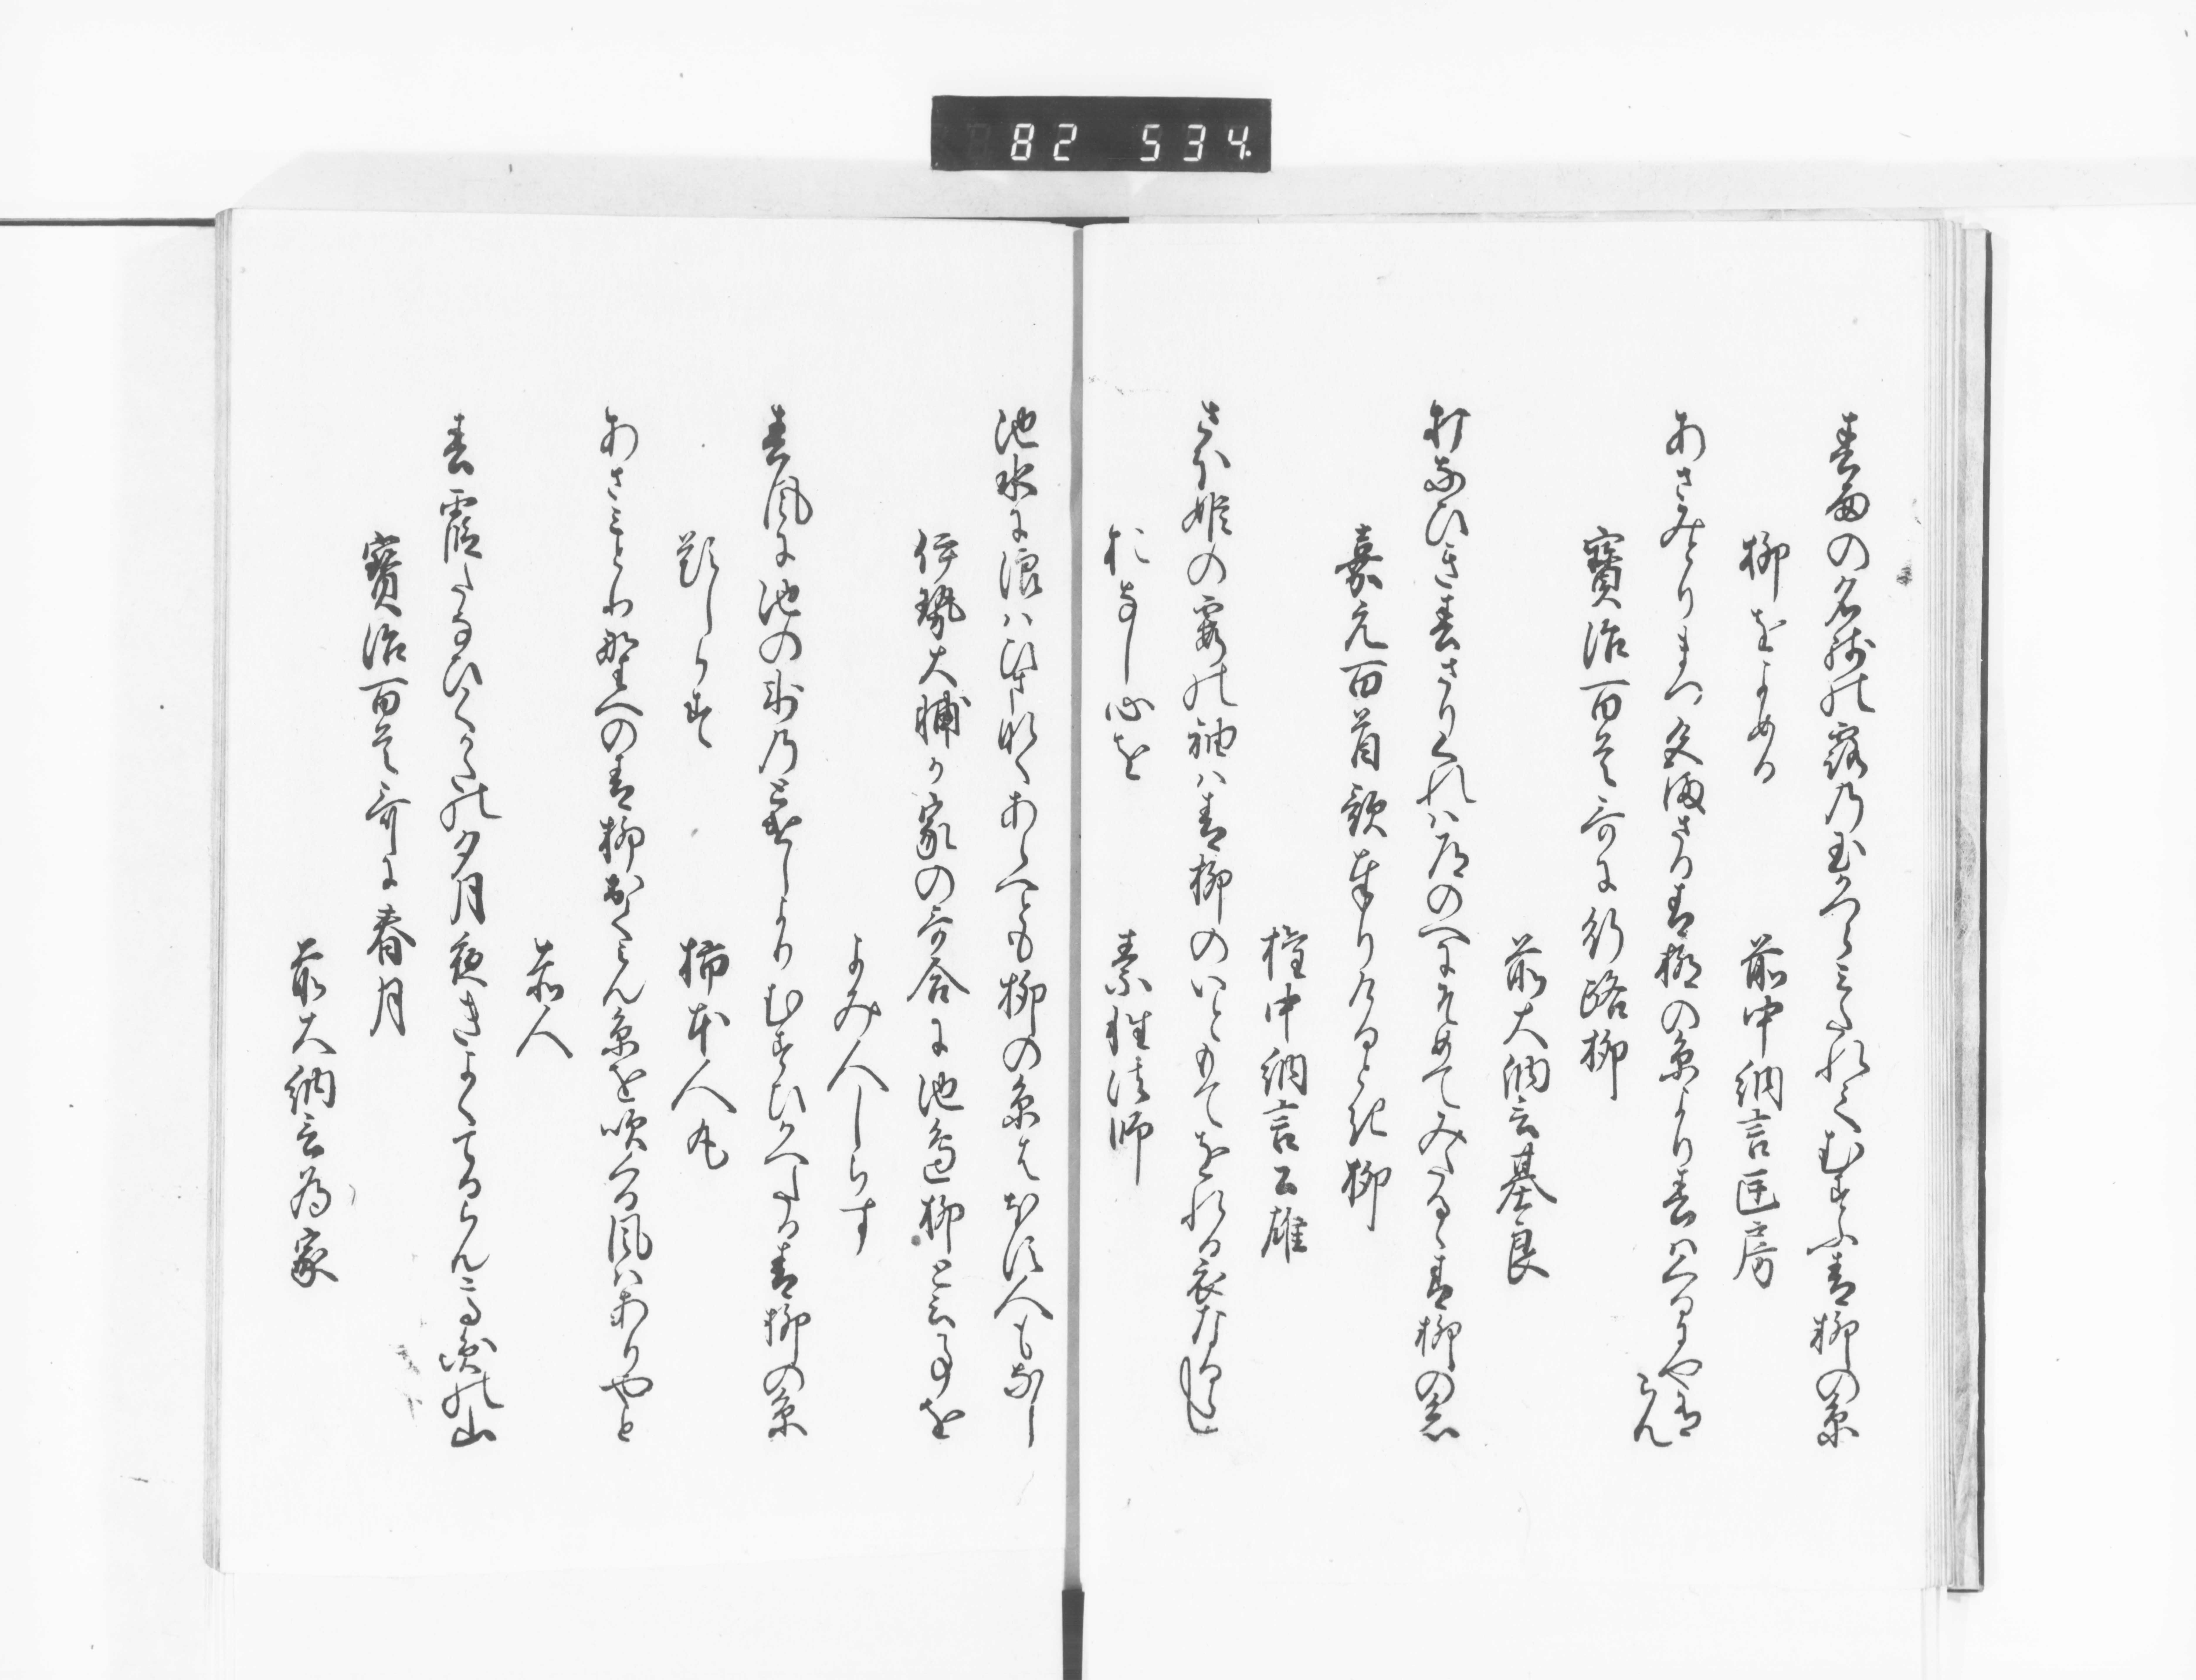 82 534
春雨の名残の露乃玉かつらみたれてむすふ青柳の糸
柳をよめる　前中納言匡房
あさみとりまつ色まさる青柳の糸より春はくるにや有
らん
寶治百首哥に行路柳
前大納言基良
打なひき春さりくれは道のへにそめてみたるゝ青柳の
嘉元百首歌奉りけるとき柳
権中納言公雄
さほ姫の霞の袖は青柳のいともてをれる衣なるらし
おなし心を　素性法師
池水に浪ハひまなくあらへとも柳の糸をほす人もなし
伊勢大輔か家の哥合に池邊柳と云事を
よみ人しらす
春風に池の氷乃とけしよりむすひかへたる青柳の糸
題しらす　柿本人丸
あさみとり野へ の青柳出てみん糸を吹くる風はありやと
赤人
春霞たなひく の夕月夜きよくてるらん高圓の山
寶治百首哥に春月
前大納言為家